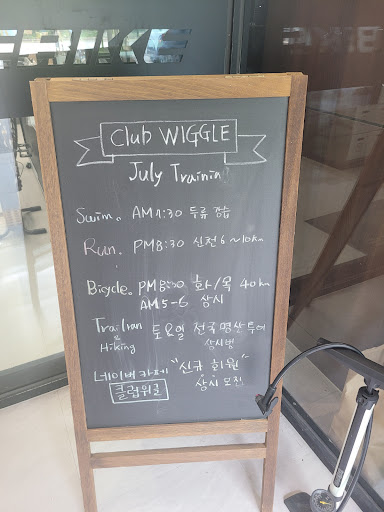 Club WIGGLE
July Training
Swim. AM 1:30 두류 강습
Run. PM 8:30 신천 6~10km
Bicycle. PM 8:00 화/목 40km
AM 5-6 상시
Trailrun & Hiking 토&일 전국 명산 투어
상시벙
네이버 카페 "신규 회원"
클럽위글 상시 모집